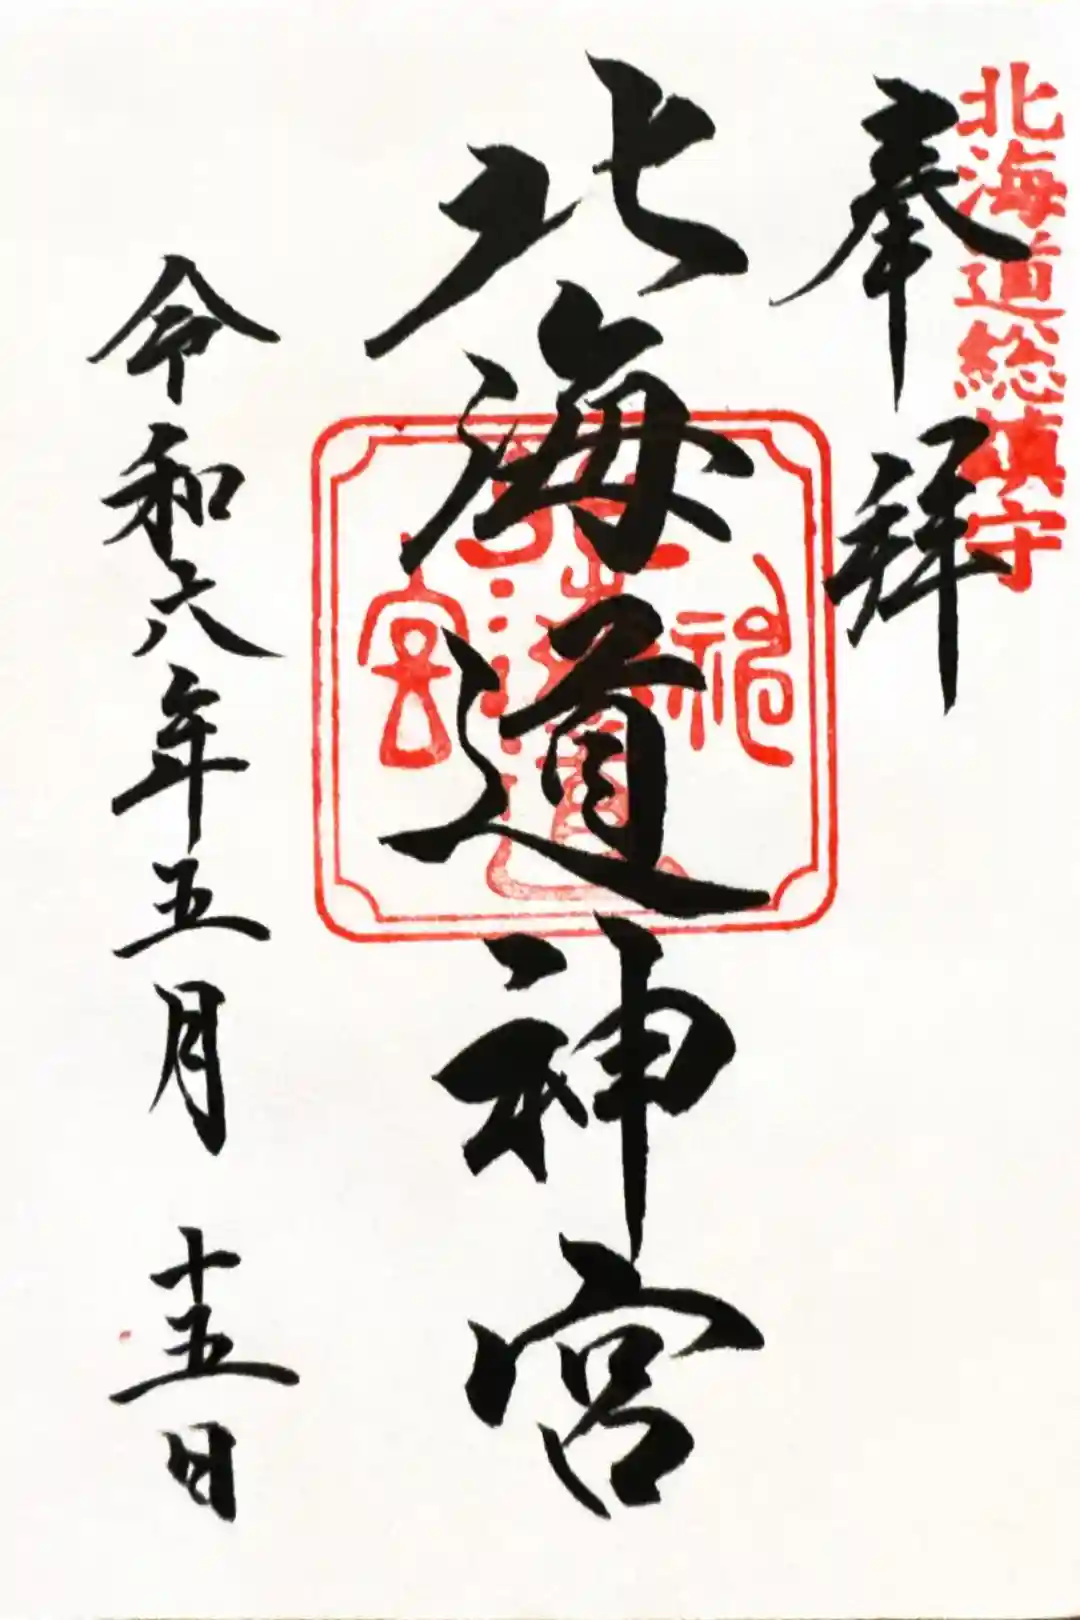 北海道総鎮守
奉拝
北海道神宮
北海道神宮
令和六年五月十五日